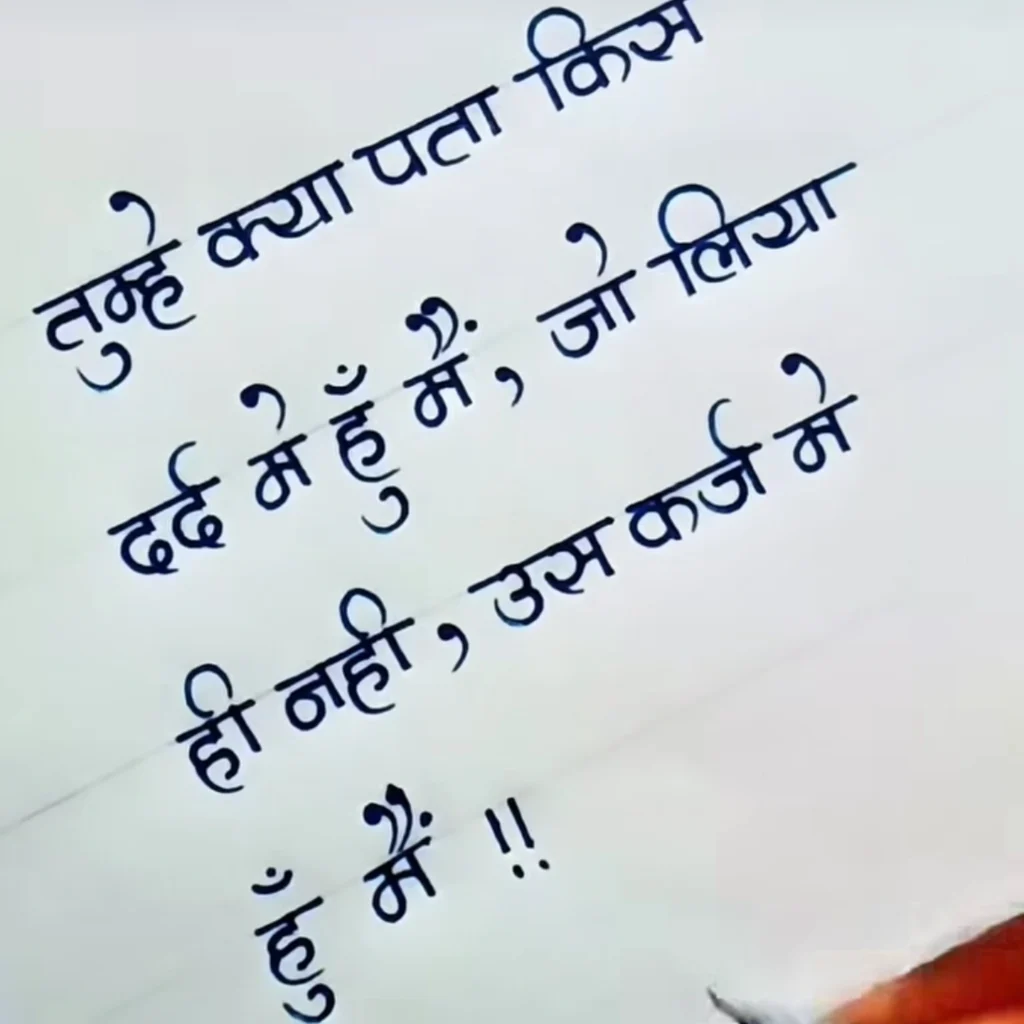 तुम्हे क्या पता किस
दर्द मे हुँ मैं, जो लिया
ही नही, उस कर्ज मे
हुँ मैं !!